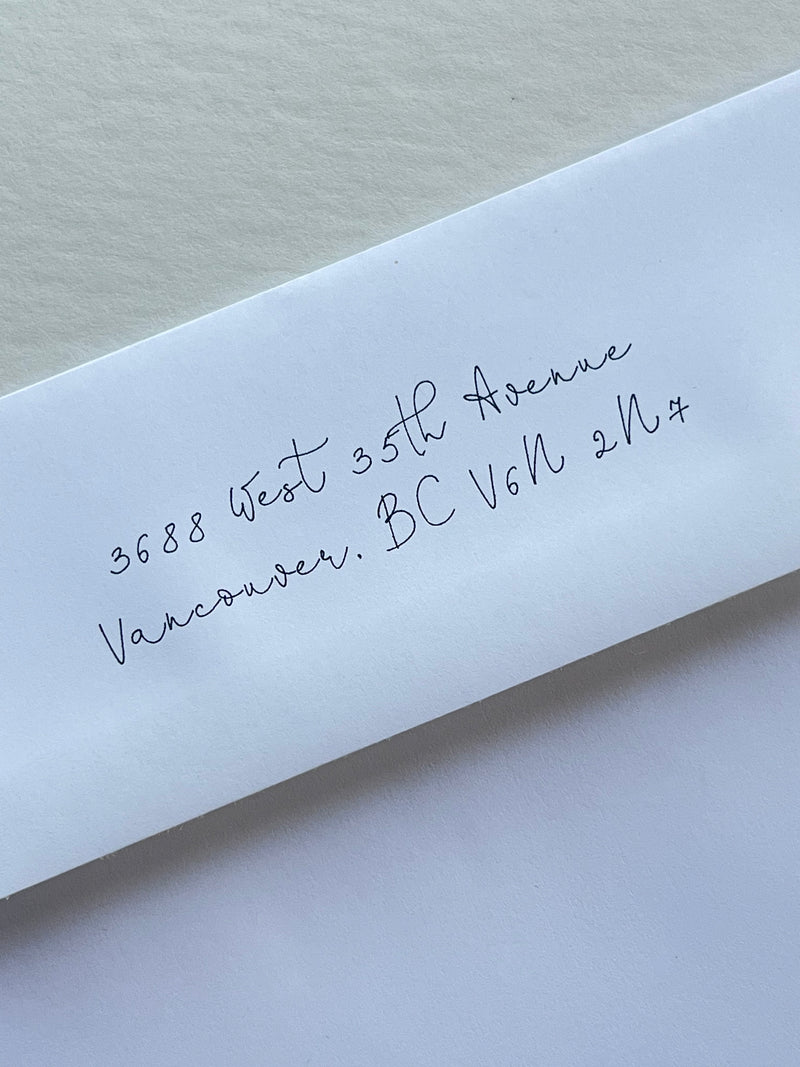 3688 West 35th Avenue
Vancouver. BC V6N 2N7